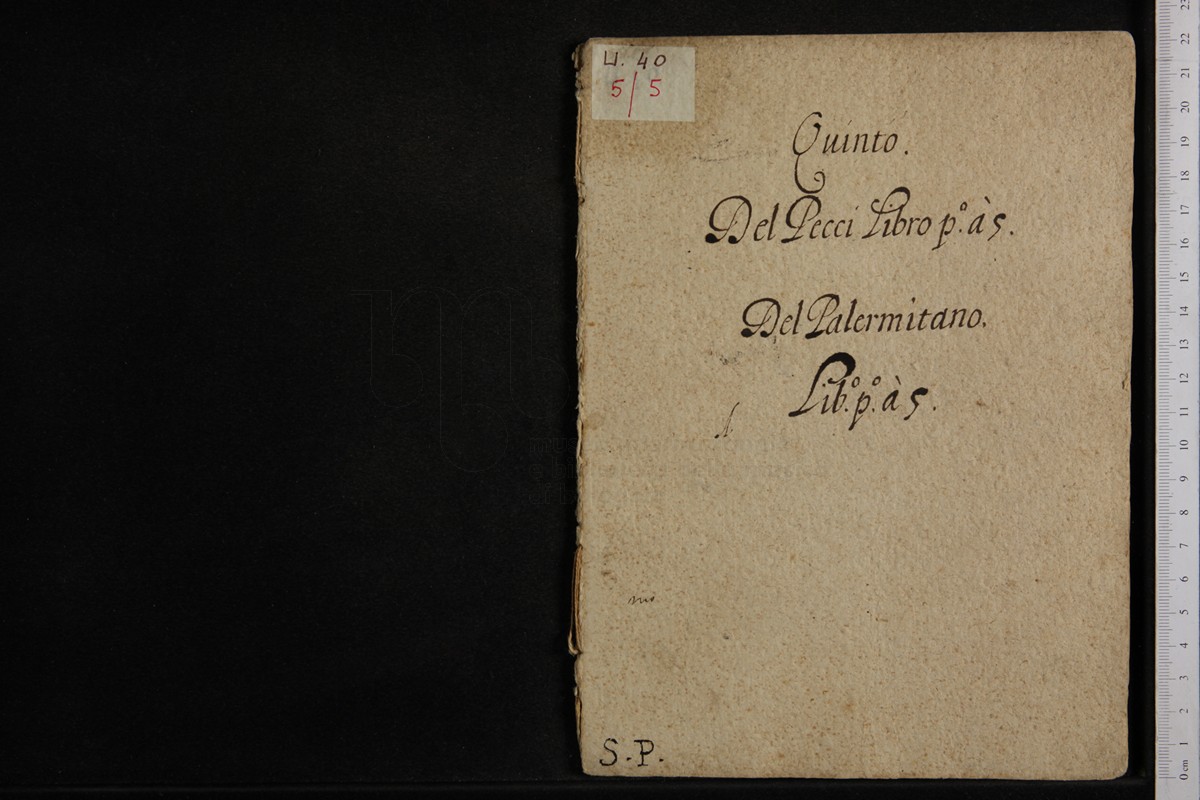 U. 40
5/5
Quinto.
Del Pecci Libro p.º à 5.
Del Palermitano.
Lib.º p.º à 5.
S.P.
0 cm 1 2 3 4 5 6 7 8 9 10 11 12 13 14 15 16 17 18 19 20 21 22 23